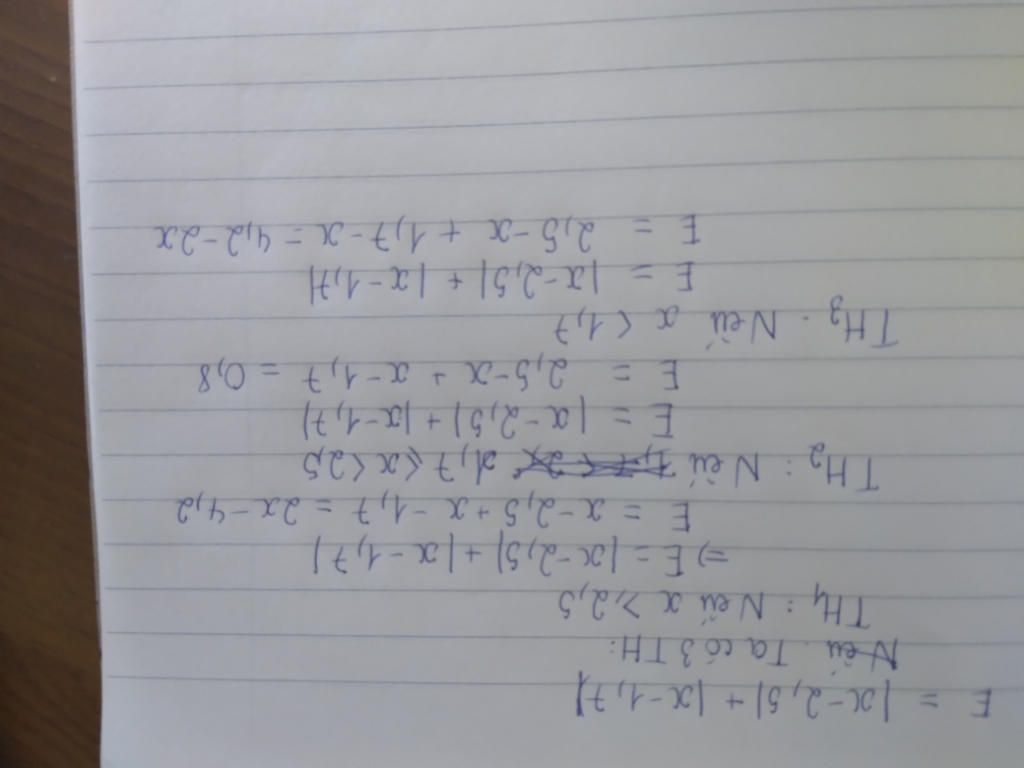 E = |x-2,5| + |x-1,7|
Nếu Ta có 3 TH:
TH1: Nếu x ≥ 2,5
=> E = |x-2,5| + |x-1,7|
E = x-2,5 + x-1,7 = 2x-4,2
TH2: Nếu 1,7 ≤ x < 2,5
E = |x-2,5| + |x-1,7|
E = 2,5-x + x-1,7 = 0,8
TH3. Nếu x < 1,7
E = |x-2,5| + |x-1,7|
E = 2,5-x + 1,7-x = 4,2-2x